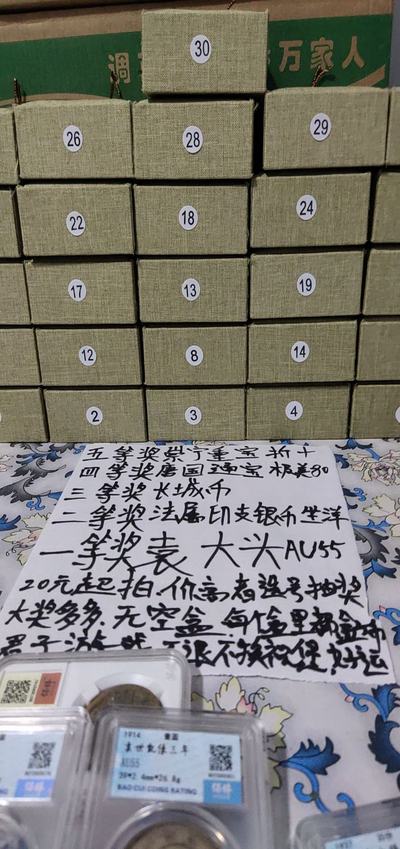 30
调 万家人
26 28 29
22 18 24
17 13 19
12 8 14
2 3 4
五等奖崇宁重宝折十
四等奖唐国通宝极美80
三等奖长城币
二等奖法属印支银币坐洋
一等奖袁大头AU55
20元起拍.价高者选号抽奖
大奖多多.无空盒每个盒里都
君子游戏 退不换祝您好运
1914 壹圆
袁世凯像三年
AU55
39*2.4mm*26.8g
BAO CUI COING RATING
保粹
1937